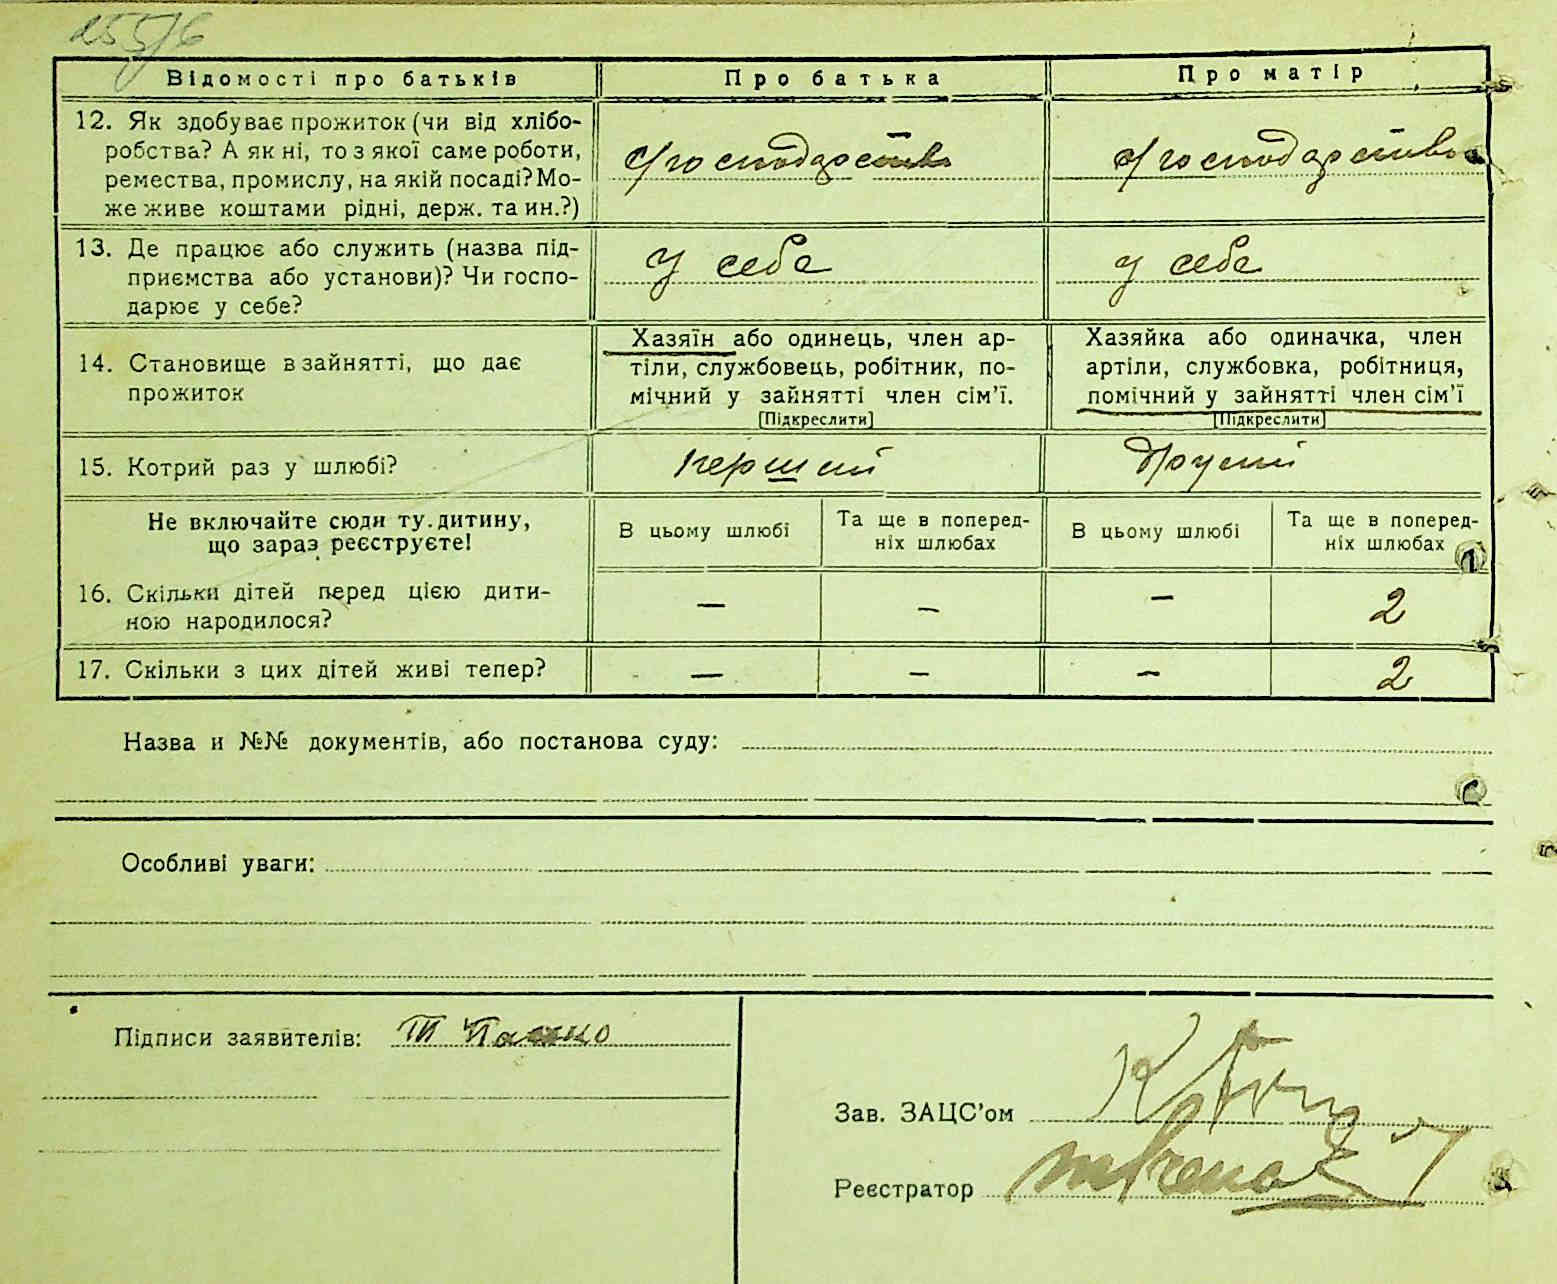 255/6
Відомості про батьків
Про батька
Про матір
12. Як здобуває прожиток (чи від хлібо-
робства? А як ні, то з якої саме роботи,
ремества, промислу, на якій посаді? Мо-
же живе коштами рідні, держ. та ин.?)
с/господарство
с/господарство
13. Де працює або служить (назва під-
приємства або установи)? Чи госпо-
дарює у себе?
у себе
у себе
14. Становище в зайнятті, що дає
прожиток
Хазяїн або одинець, член ар-
тіли, службовець, робітник, по-
мічний у зайнятті член сім’ї.
[Підкреслити]
Хазяйка або одиначка, член
артіли, службовка, робітниця,
помічний у зайнятті член сім’ї
[Підкреслити]
15. Котрий раз у шлюбі?
перший
другий
Не включайте сюди ту дитину,
що зараз реєструєте!
В цьому шлюбі
Та ще в поперед-
ніх шлюбах
В цьому шлюбі
Та ще в поперед-
ніх шлюбах
16. Скільки дітей перед цією дити-
ною народилося?
—
—
—
2
17. Скільки з цих дітей живі тепер?
—
—
—
2
Назва и №№ документів, або постанова суду:
Особливі уваги:
Підписи заявителів:
Зав. ЗАЦС’ом
Реєстратор